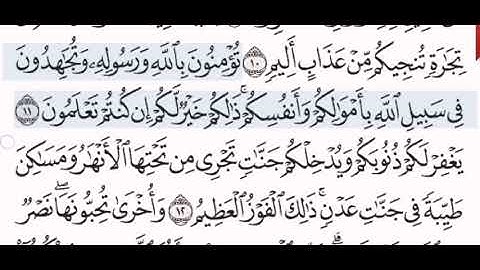 تِجَٰرَةٖ تُنجِيكُم مِّنۡ عَذَابٍ أَلِيمٖ ١٠ تُؤۡمِنُونَ بِٱللَّهِ وَرَسُولِهِۦ وَتُجَٰهِدُونَ
فِي سَبِيلِ ٱللَّهِ بِأَمۡوَٰلِكُمۡ وَأَنفُسِكُمۡۚ ذَٰلِكُمۡ خَيۡرٞ لَّكُمۡ إِن كُنتُمۡ تَعۡلَمُونَ ١١
يَغۡفِرۡ لَكُمۡ ذُنُوبَكُمۡ وَيُدۡخِلۡكُمۡ جَنَّٰتٖ تَجۡرِي مِن تَحۡتِهَا ٱلۡأَنۡهَٰرُ وَمَسَٰكِنَ
طَيِّبَةٗ فِي جَنَّٰتِ عَدۡنٖۚ ذَٰلِكَ ٱلۡفَوۡزُ ٱلۡعَظِيمُ ١٢ وَأُخۡرَىٰ تُحِبُّونَهَاۖ نَصۡرٞ